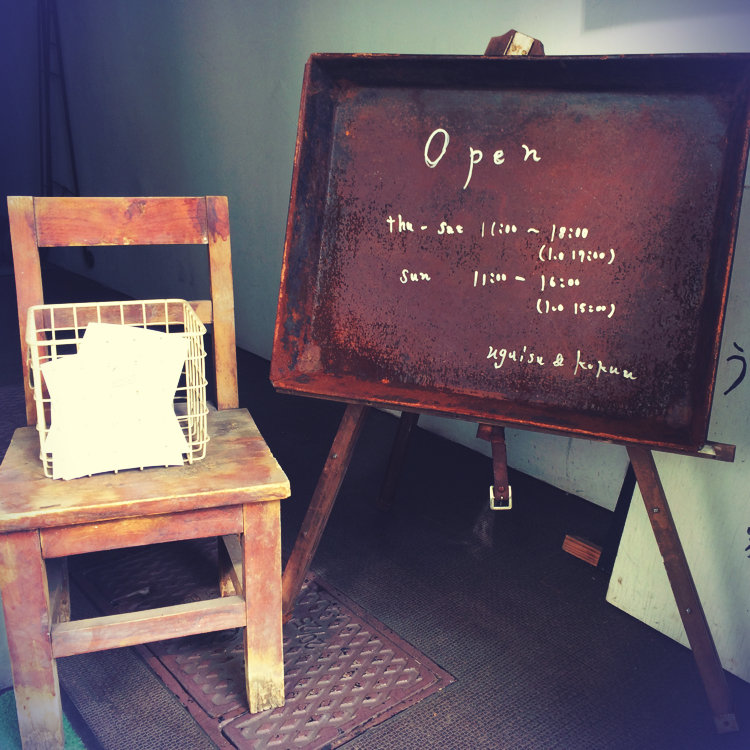 Open
thu - sat 11:00 ~ 18:00
(l.o 19:00)
sun 11:00 - 16:00
(l.o 15:00)
uguisu & kokuu
う